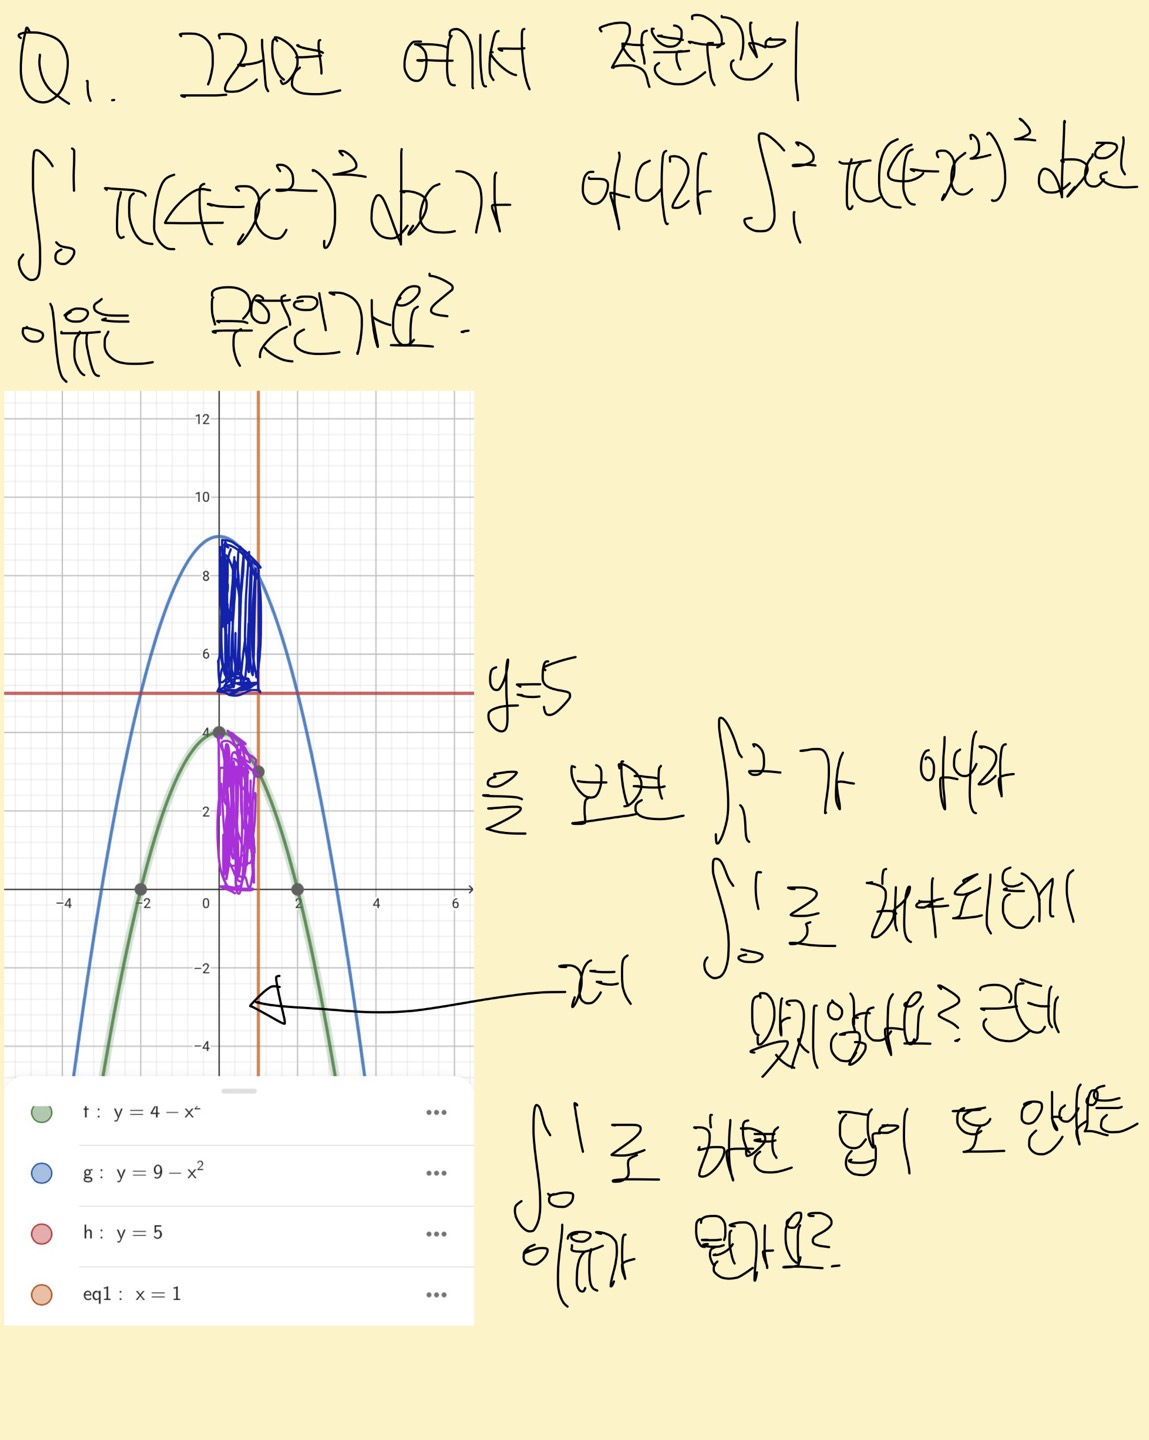 Q1. 그러면 여기서 적분구간이
∫₀¹ π(4-x²)² dx가 아니라 ∫₁² π(4-x²)² dx인
이유는 무엇인가요?
12
10
8
6
4
2
-4 -2 0 2 4 6
-2
-4
y=5
을 보면 ∫₁² 가 아니라
∫₀¹ 로 해야되는게
x=1
맞지않나요? 근데
∫₀¹ 로 하면 답이 또 안나오는
이유가 뭔가요?
f : y = 4 − x²
g : y = 9 − x²
h : y = 5
eq1 : x = 1